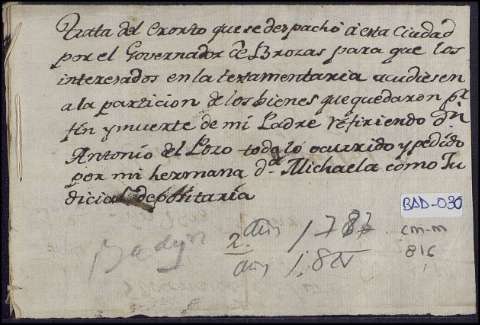 Trata del Exorto que se despachó á esta Ciudad
por el Governador de Brozas para que los
interesados en la testamentaria acudiesen
a la particion de los bienes que quedaron pr
fin y muerte de mi Padre refiriendo Dn
Antonio del Pozo todo lo ocurrido y pedido
por mi hermana da Michaela como Ju
dicial depositaria
BAD-030
cm-m
816
Badajoz
1787